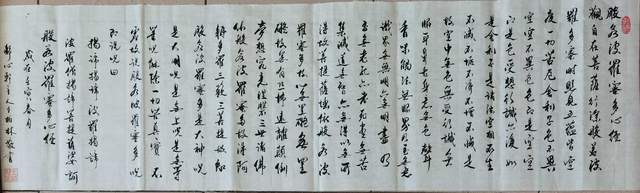 般若波羅蜜多心經
觀自在菩薩行深般若波
羅多蜜時照見五蘊皆空
度一切苦厄舍利子色不異
空空不異色色即是空空
即是色受想行識亦復如
是舍利子是諸法空相不生
不滅不垢不淨不增不減是
故空中無色無受想行識無
眼耳鼻舌身意無色聲
香味觸法無眼界乃至無意
識界無無明亦無無明盡乃
至無老死亦無老死盡無苦
集滅道無智亦無得以無所
得故菩提薩埵依般若波
羅蜜多故心無罣礙無罣
礙故無有恐怖遠離顛倒
夢想究竟涅槃三世諸佛
依般若波羅蜜多故得阿
耨多羅三藐三菩提故知
般若波羅蜜多是大神咒
是大明咒是無上咒是無等
等咒能除一切苦真實不
虛故說般若波羅蜜多咒
即說咒曰
揭諦揭諦波羅揭諦
波羅僧揭諦菩提薩婆訶
般若波羅蜜多心經
歲在壬寅春月